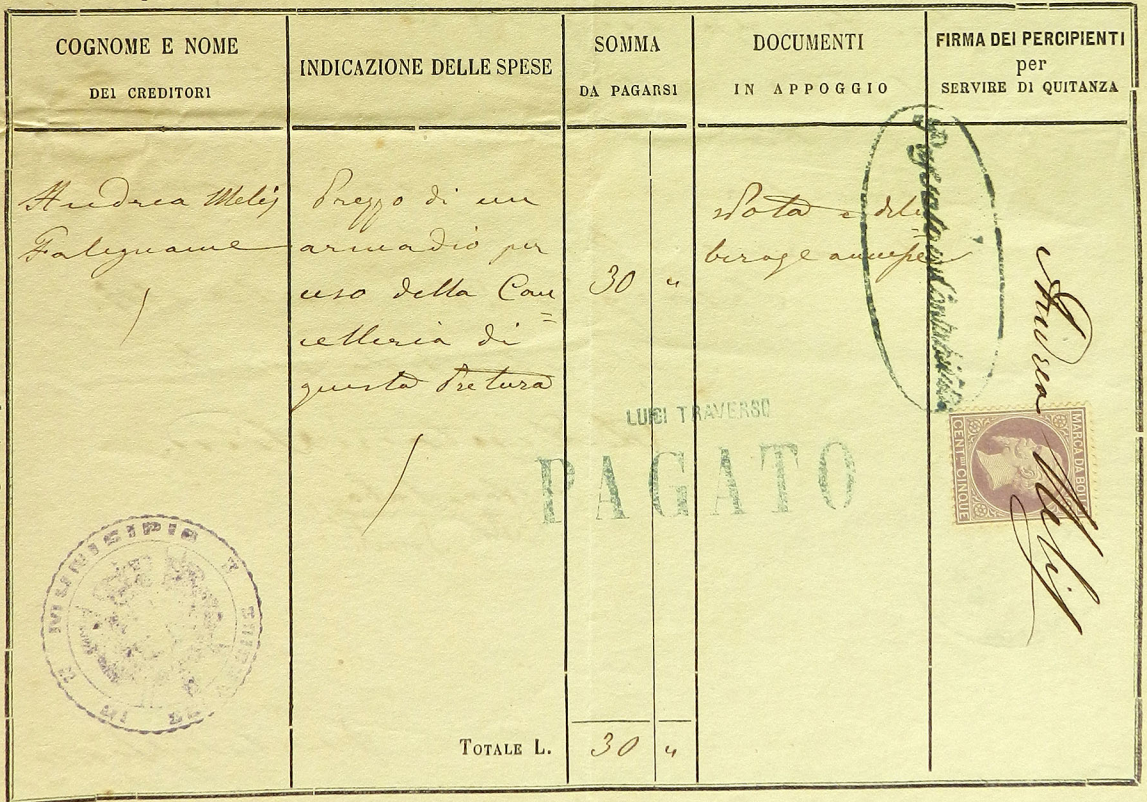 COGNOME E NOME
DEI CREDITORI
INDICAZIONE DELLE SPESE
SOMMA
DA PAGARSI
DOCUMENTI
IN APPOGGIO
FIRMA DEI PERCIPIENTI
per
SERVIRE DI QUITANZA
Andrea Melis
Falegname
Prezzo di un
armadio per
uso della Can=
celleria di
questa Pretura
30 "
Nota e deli=
beraz e annesse
Andrea Melis
MARCA DA BOLLO
CENT.MI CINQUE
LUIGI TRAVERSO
PAGATO
MUNISIPIO
TOTALE L.
30 "